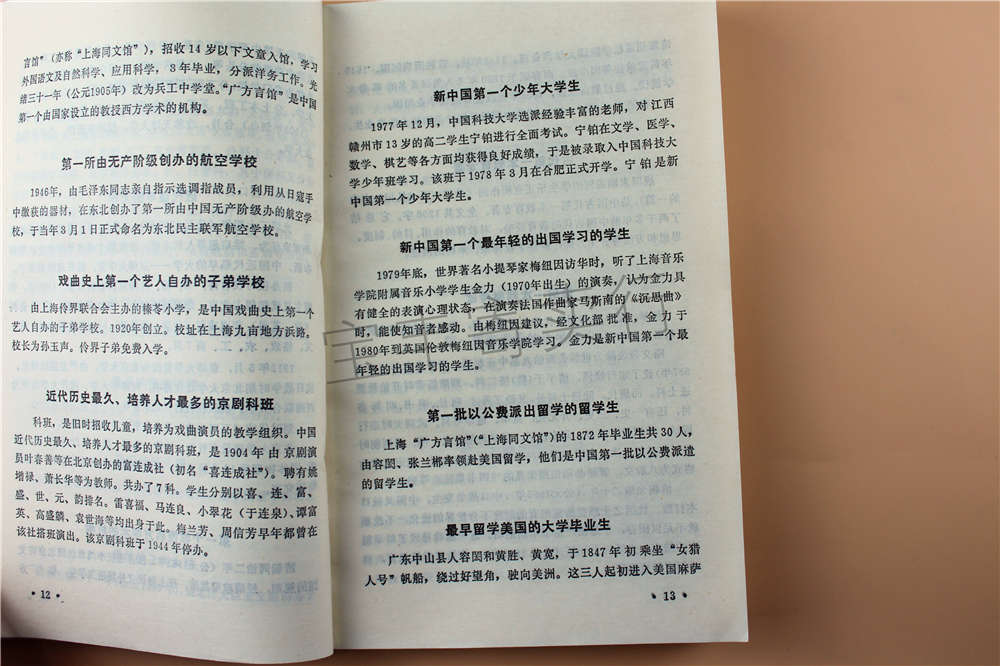 言馆”（亦称“上海同文馆”），招收14岁以下文童入馆，学习
外国语文及自然科学、应用科学，3年毕业，分派洋务工作。光
绪三十一年（公元1905年）改为兵工中学堂。“广方言馆”是中国
第一个由国家设立的教授西方学术的机构。
第一所由无产阶级创办的航空学校
1946年，由毛泽东同志亲自指示选调指战员，利用从日寇手
中缴获的器材，在东北创办了第一所由中国无产阶级办的航空学
校，于当年3月1日正式命名为东北民主联军航空学校。
戏曲史上第一个艺人自办的子弟学校
由上海伶界联合会主办的榛苓小学，是中国戏曲史上第一个
艺人自办的子弟学校。1920年创立。校址在上海九亩地方浜路。
校长为孙玉声。伶界子弟免费入学。
近代历史最久、培养人才最多的京剧科班
科班，是旧时招收儿童，培养为戏曲演员的教学组织。中国
近代历史最久、培养人才最多的京剧科班，是1904年由京剧演
员叶春善等在北京创办的富连成社（初名“喜连成社”）。聘有姚
增禄、萧长华等为教师。共办了7科。学生分别以喜、连、富、
盛、世、元、韵排名。雷喜福、马连良、小翠花（于连泉）、谭富
英、高盛麟、袁世海等均出身于此。梅兰芳、周信芳早年都曾在
该社搭班演出。该京剧科班于1944年停办。
·12·
新中国第一个少年大学生
1977年12月，中国科技大学选派经验丰富的老师，对江西
赣州市13岁的高二学生宁铂进行全面考试。宁铂在文学、医学、
数学、棋艺等各方面均获得良好成绩，于是被录取入中国科技大
学少年班学习。该班于1978年3月在合肥正式开学。宁铂是新
中国第一个少年大学生。
新中国第一个最年轻的出国学习的学生
1979年底，世界著名小提琴家梅纽因访华时，听了上海音乐
学院附属音乐小学学生金力（1970年出生）的演奏，认为金力具
有健全的表演心理状态，在演奏法国作曲家马斯南的《沉思曲》
时，能使知音者感动。由梅纽因建议，经文化部批准，金力于
1980年到英国伦敦梅纽因音乐学院学习。金力是新中国第一个最
年轻的出国学习的学生。
第一批以公费派出留学的留学生
上海“广方言馆”（“上海同文馆”）的1872年毕业生共30人，
由容闳、张兰郴率领赴美国留学，他们是中国第一批以公费派遣
的留学生。
最早留学美国的大学毕业生
广东中山县人容闳和黄胜、黄宽，于1847年初乘坐“女猎
人号”帆船，绕过好望角，驶向美洲。这三人起初进入美国麻萨
·13·